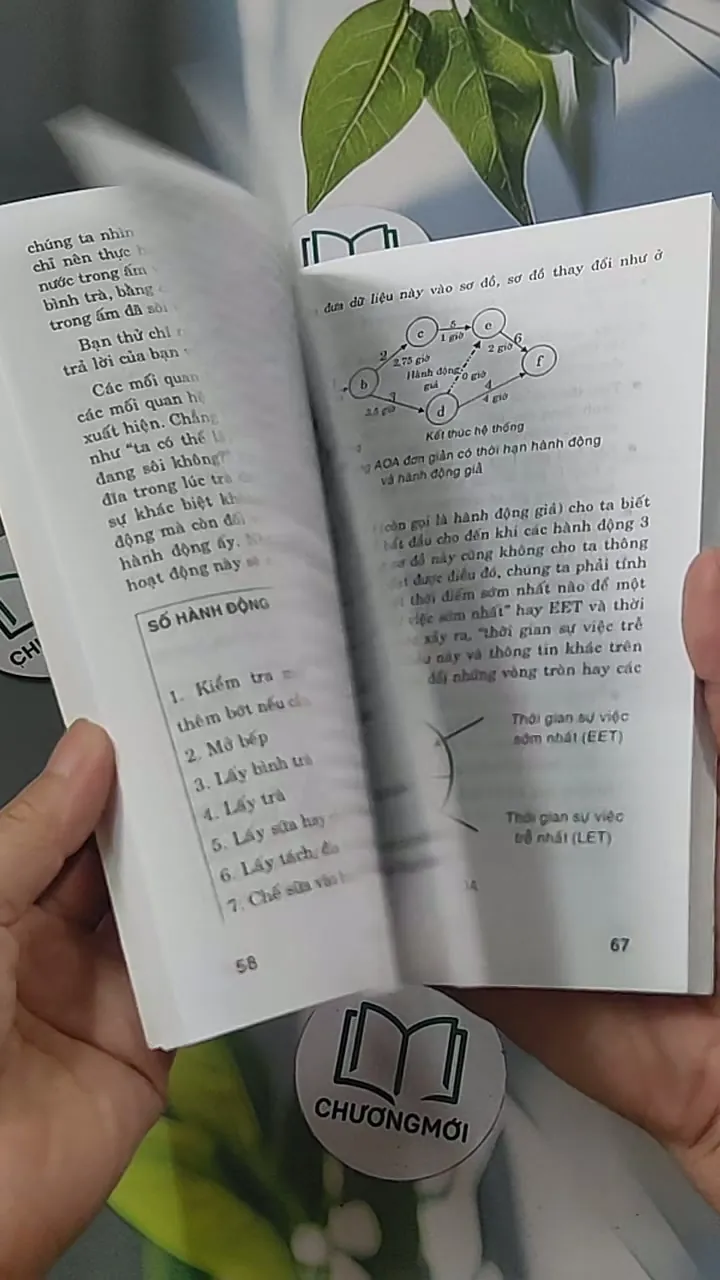 chúng ta nhìn
chỉ nên thực
nước trong ấm
bình trà, bằng
trong ấm đã sôi
Bạn thử chỉ
trả lời của bạn
Các mối quan
các mối quan hệ
xuất hiện. Chẳng
như "ta có thể
đang sôi không?
đĩa trong lúc trà
sự khác biệt
động mà còn đối
hành động ấy.
hoạt động này sẽ
SỐ HÀNH ĐỘNG
1. Kiểm tra
thêm bớt nếu
2. Mở bếp
3. Lấy bình trà
4. Lấy trà
5. Lấy sữa hay
6. Lấy tách,
7. Chế sữa vào
58
đưa dữ liệu này vào sơ đồ, sơ đồ thay đổi như ở
c 5 1 giờ e
2 2,75 giờ 2 giờ 6
b Hành động giả 0 giờ f
3 3,5 giờ d 4 4 giờ
Kết thúc hệ thống
AOA đơn giản có thời hạn hành động
và hành động giả
(còn gọi là hành động giả) cho ta biết
bắt đầu cho đến khi các hành động 3
sơ đồ này cũng không cho ta thông
được điều đó, chúng ta phải tính
thời điểm sớm nhất nào để một
việc sớm nhất" hay EET và thời
xảy ra, "thời gian sự việc trễ
này và thông tin khác trên
đổi những vòng tròn hay các
Thời gian sự việc
sớm nhất (EET)
Thời gian sự việc
trễ nhất (LET)
67
CHƯƠNG MỚI